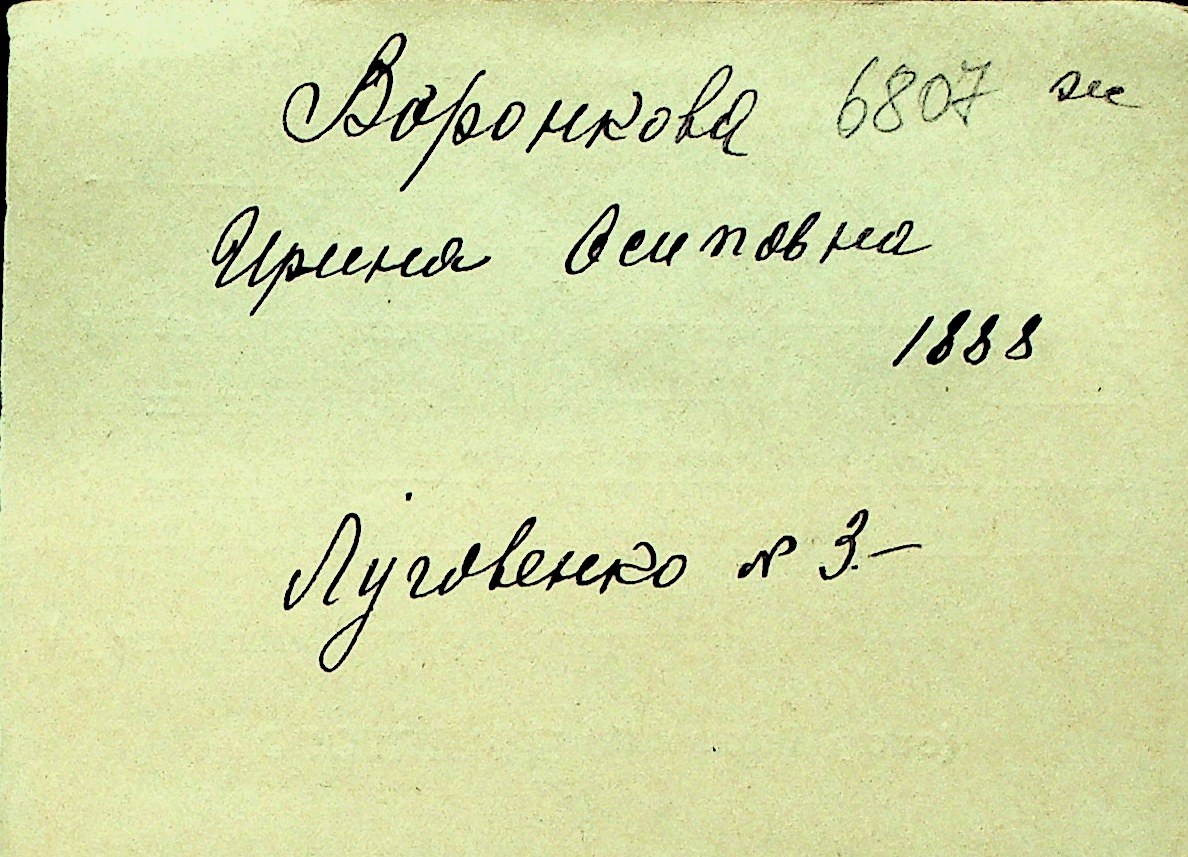 Воронкова 6807 ж
Ирина Осиповна
1888
Луговенко № 3.-